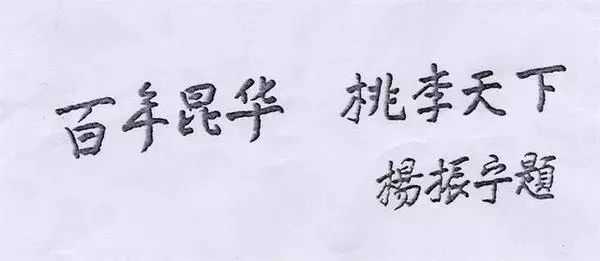 百年昆华 桃李天下
楊振宁題